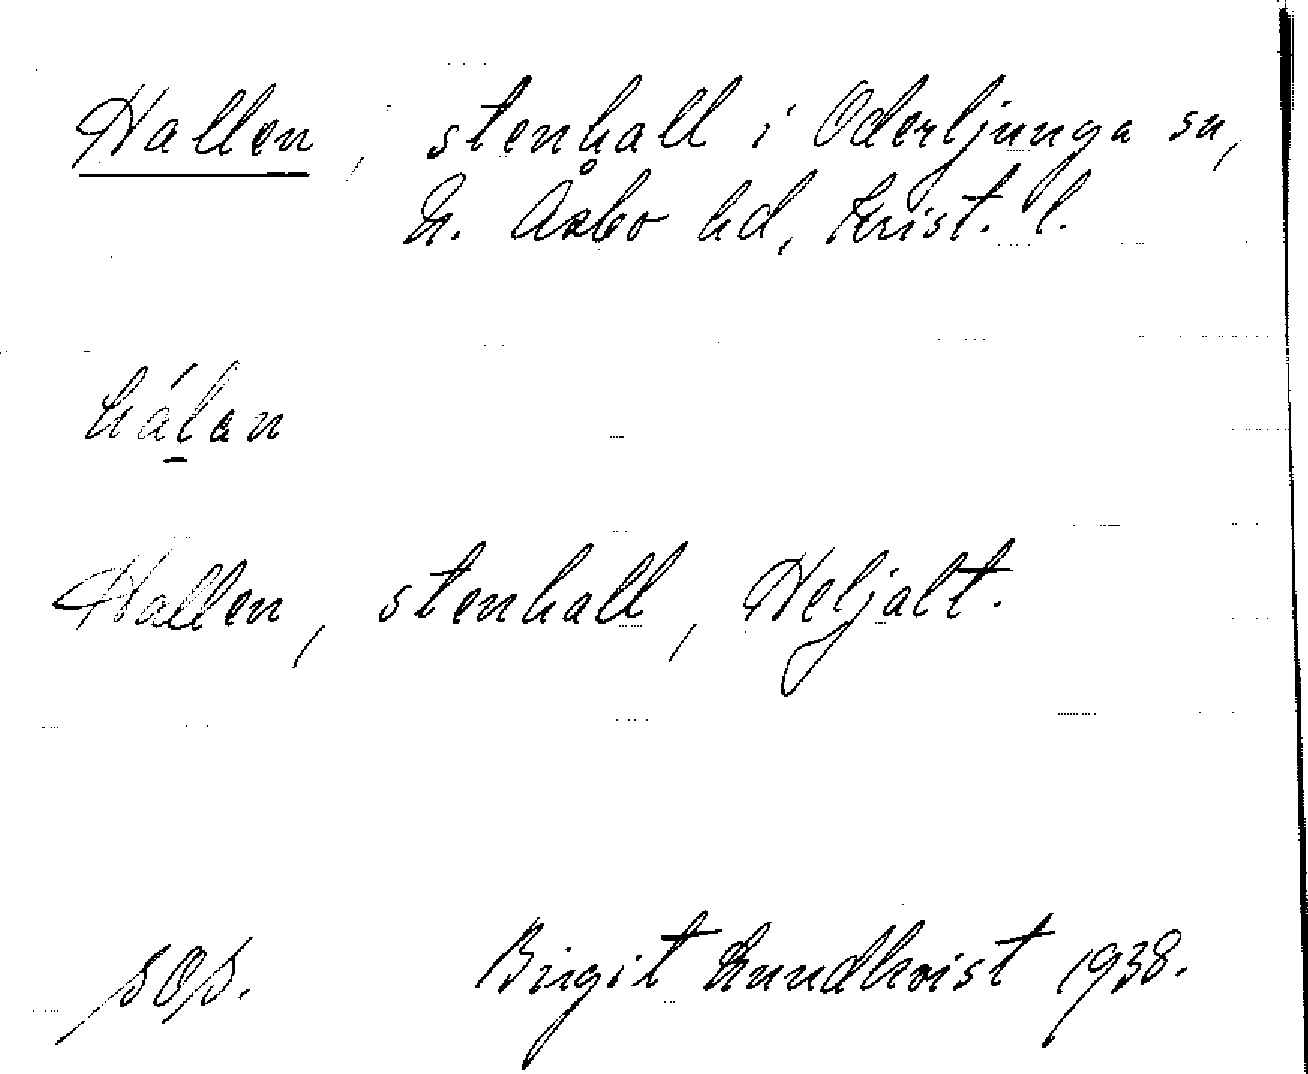 Hallen, stenhall i Oderljunga sn,
N. Åsbo hd, Krist. l.
hálan
Hallen, stenhall, Heljalt.
SOS. Birgit Lundkvist 1938.